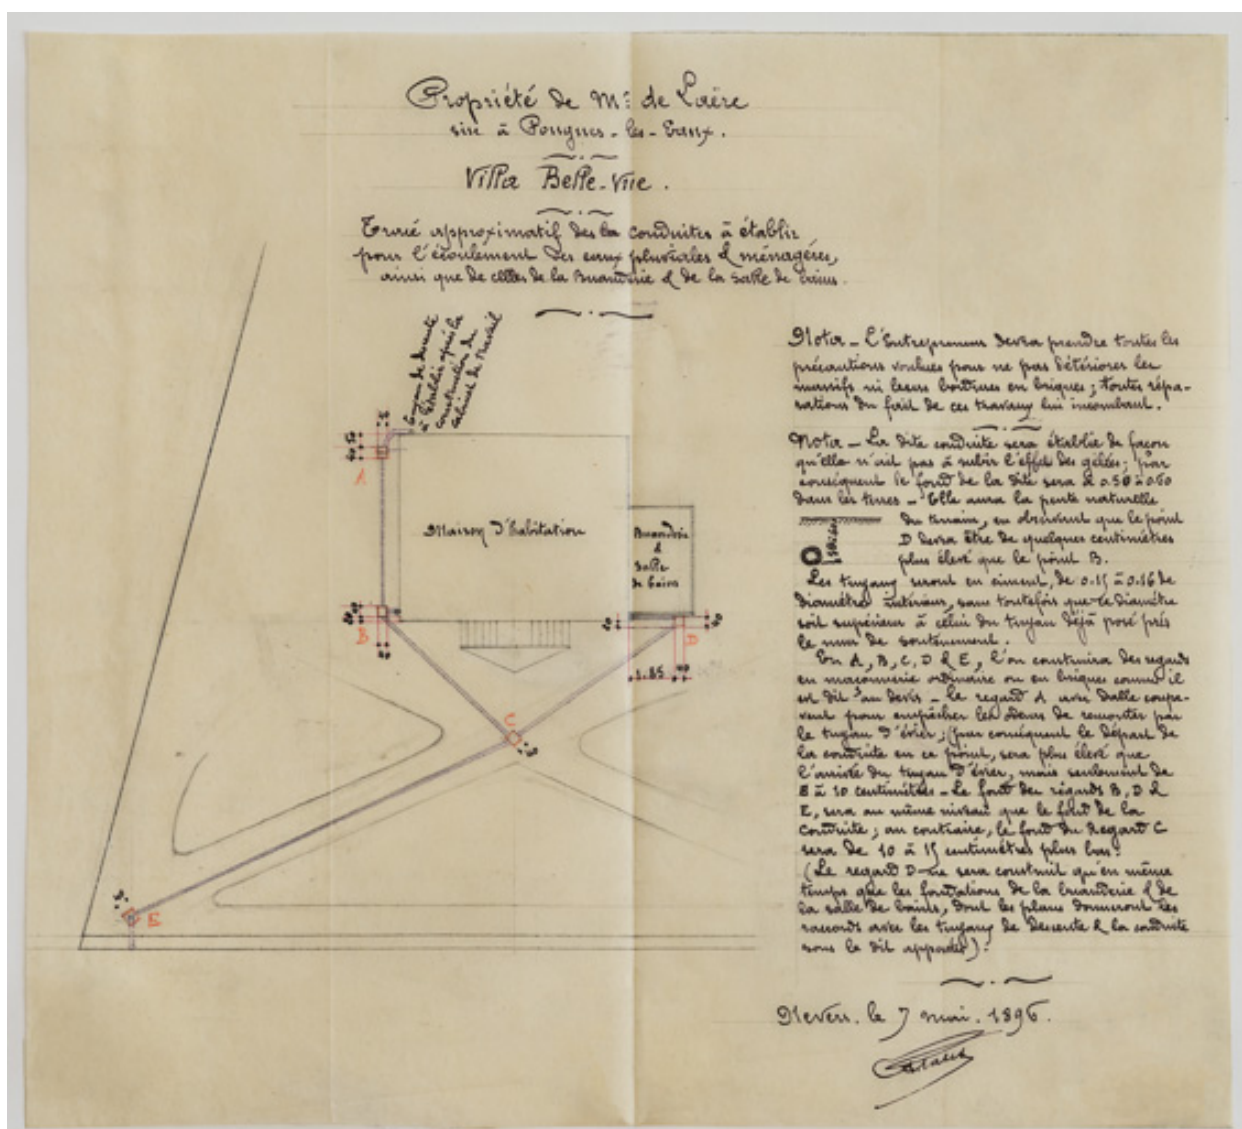 Propriété de Mr de Laëre
sise à Pougues-les-Eaux.
Villa Belle-Vue.
Tracé approximatif des conduites à établir
pour l'écoulement des eaux pluviales & ménagères,
ainsi que de celles de la Buanderie & de la salle de bains.
Tuyau de descente
à établir après la
construction du
cabinet de travail
A
Maison d'habitation
Buanderie
&
Salle
de bains
B
D
1.85
C
E
Nota - L'Entrepreneur devra prendre toutes les
précautions voulues pour ne pas détériorer les
massifs ni leurs bordures en briques; toutes répa-
rations du fait de ces travaux lui incombant.
Nota - La dite conduite sera établie de façon
qu'elle n'ait pas à subir l'effet des gelées; par
conséquent le fond de la dite sera à 0.50 à 0.60
dans les terres - Elle aura la pente naturelle
du terrain, en observant que le point
D devra être de quelques centimètres
plus élevé que le point B.
Les tuyaux seront en ciment, de 0.15 à 0.16 de
diamètre intérieur, sans toutefois que ce diamètre
soit supérieur à celui du tuyau déjà posé près
le mur de soutènement.
En A, B, C, D & E, l'on construira des regards
en maçonnerie ordinaire ou en briques comme il
est dit au devis - Le regard A avec dalle coupe-
vent pour empêcher les odeurs de remonter par
le tuyau d'évier; (par conséquent le départ de
la conduite en ce point, sera plus élevé que
l'arrivée du tuyau d'évier, mais seulement de
8 à 10 centimètres - Le fond des regards B, D &
E, sera au même niveau que le fond de la
conduite; au contraire, le fond du Regard C
sera de 10 à 15 centimètres plus bas.
(Le regard D ne sera construit qu'en même
temps que les fondations de la buanderie & de
la salle de bains, dont les plans donneront les
raccords avec les tuyaux de descente & la conduite
sous le dit
Nevers. le 7 mai. 1896.